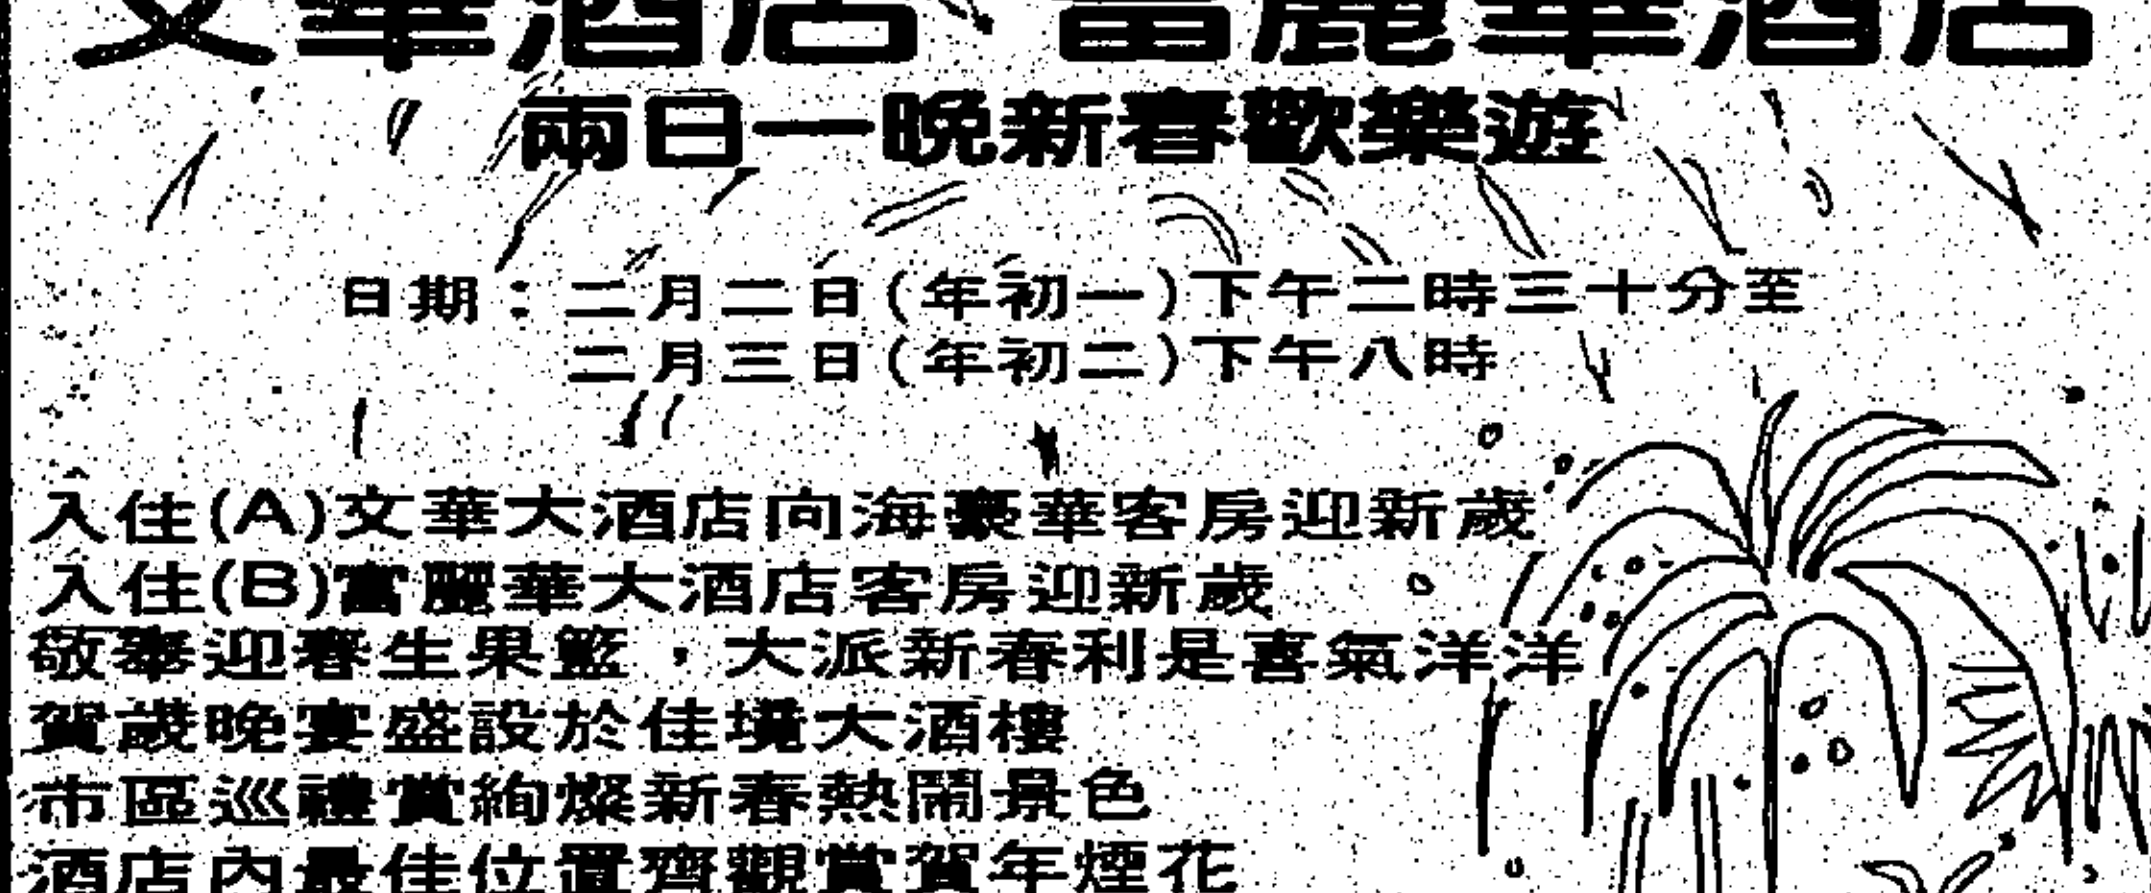 文華酒店、富麗華酒店
兩日一晚新春歡樂遊
日期：二月二日(年初一)下午二時三十分至
二月三日(年初二)下午八時
入住(A)文華大酒店向海豪華客房迎新歲
入住(B)富麗華大酒店客房迎新歲
敬奉迎春生果籃，大派新春利是喜氣洋洋
賀歲晚宴盛設於佳境大酒樓
市區巡禮賞絢燦新春熱鬧景色
酒店內最佳位置齊觀賞賀年煙花